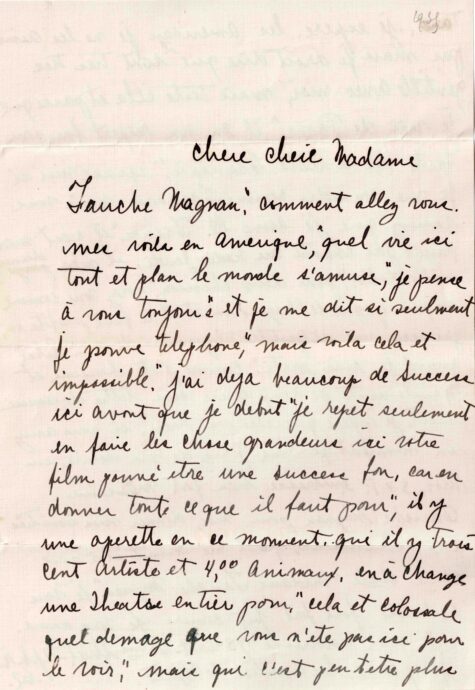 1935
Chere cheie Madame
Fauche Magnan," comment allez vous.
mes voila en Amerique," quel vie ici
tout et plan le monde s'amuse," je pense
à vous toujours" et je me dit si seulment
je pouve telephone," mais voila cela et
impossible." j'ai deja beaucoup de success
ici avont que je debut" je repet seulement
en faire les chose grandeurs ici votre
film pouné etre une success fon, car en
donner toute ce que il faut pour," il y
une operette en ce moment. qui il y trois
cent Artiste et 4,00 Animaux, en à change
une Theatre entier pour," cela et colossale
quel demage que vous n'ete pas ici pour
le voir," mais qui c'est peutetre plus